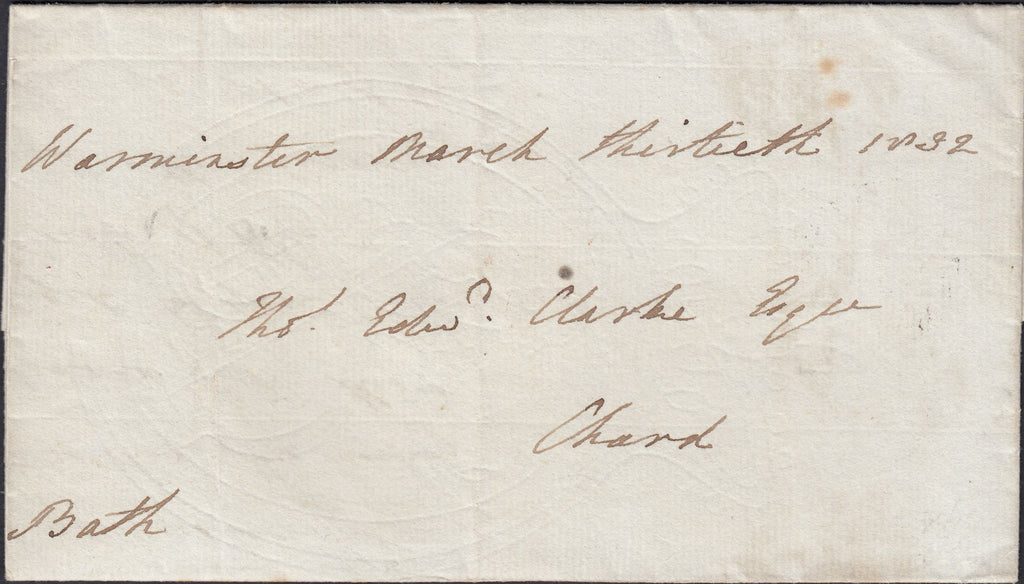 Warminster March thirtieth 1832
Thos. Edwd. Clarke Esqre
Chard
Bath